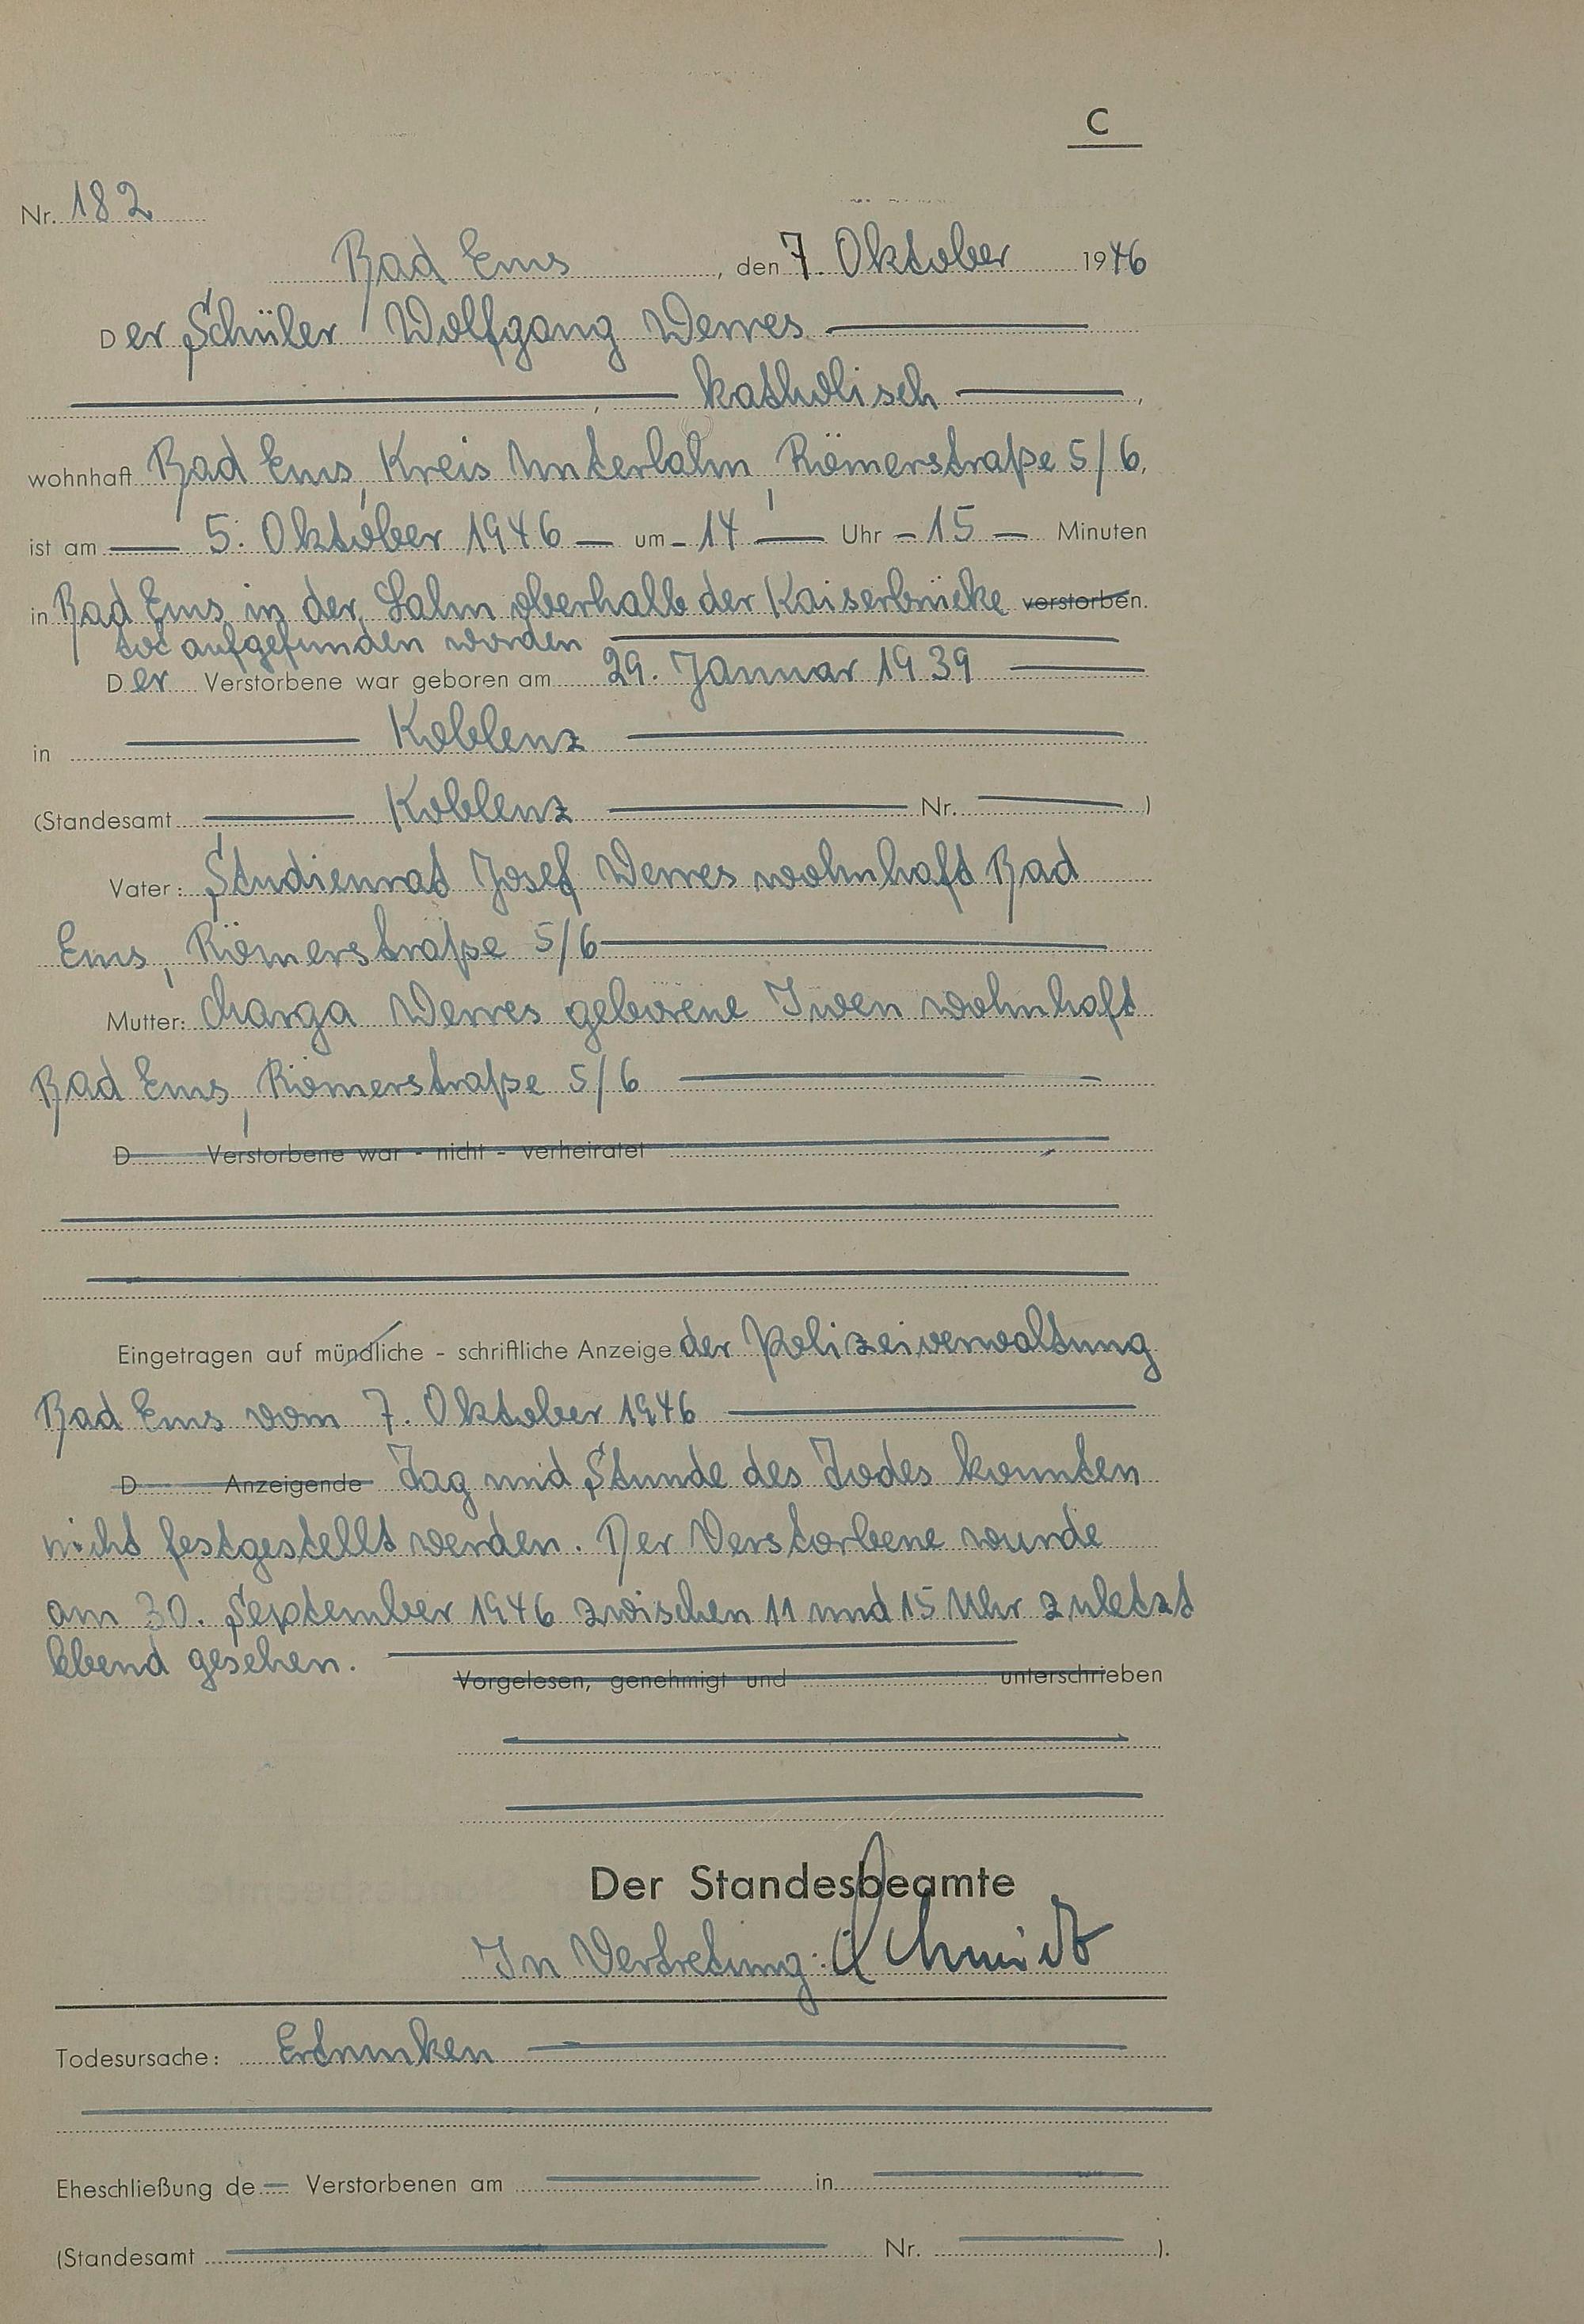 C
Nr. 182
Bad Ems, den 7. Oktober 1946
Der Schüler Wolfgang Werres
katholisch,
wohnhaft Bad Ems, Kreis Unterlahn, Römerstraße 5/6,
ist am 5. Oktober 1946 um 14 Uhr 15 Minuten
in Bad Ems in der Lahn oberhalb der Kaiserbrücke verstorben.
tot aufgefunden worden
Der Verstorbene war geboren am 29. Januar 1939
in Koblenz
(Standesamt Koblenz Nr. )
Vater: Studienrat Josef Werres wohnhaft Bad
Ems, Römerstraße 5/6
Mutter: Werres geborene Iven wohnhaft
Bad Ems, Römerstraße 5/6
D Verstorbene war - nicht - verheiratet
Eingetragen auf mündliche - schriftliche Anzeige der Polizeiverwaltung
Bad Ems vom 7. Oktober 1946
D Anzeigende Tag und Stunde des Todes konnten
nicht festgestellt werden. Der Verstorbene wurde
am 30. September 1946 zwischen 11 und 15 Uhr zuletzt
lebend gesehen.
Vorgelesen, genehmigt und unterschrieben
Der Standesbeamte
In Vertretung: Schmidt
Todesursache: Ertrunken
Eheschließung de Verstorbenen am in
(Standesamt Nr. ).